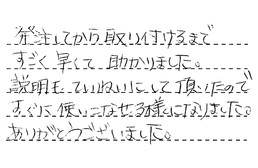 発注してから取り付けるまで
すごく早くて助かりました。
説明もていねいにして頂いたので
すぐに使いこなせる様になりました。
ありがとうございました。